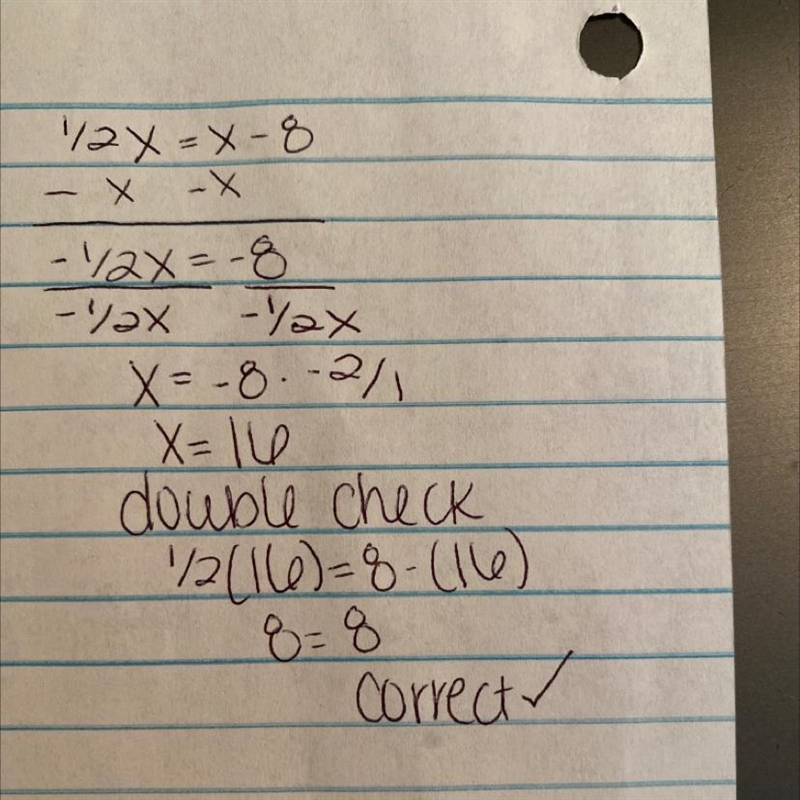 1/2x = x - 8
- x -x
-1/2x = -8
-1/2x -1/2x
x = -8 · -2/1
x = 16
double check
1/2(16) = 8 - (16)
8 = 8
correct✓